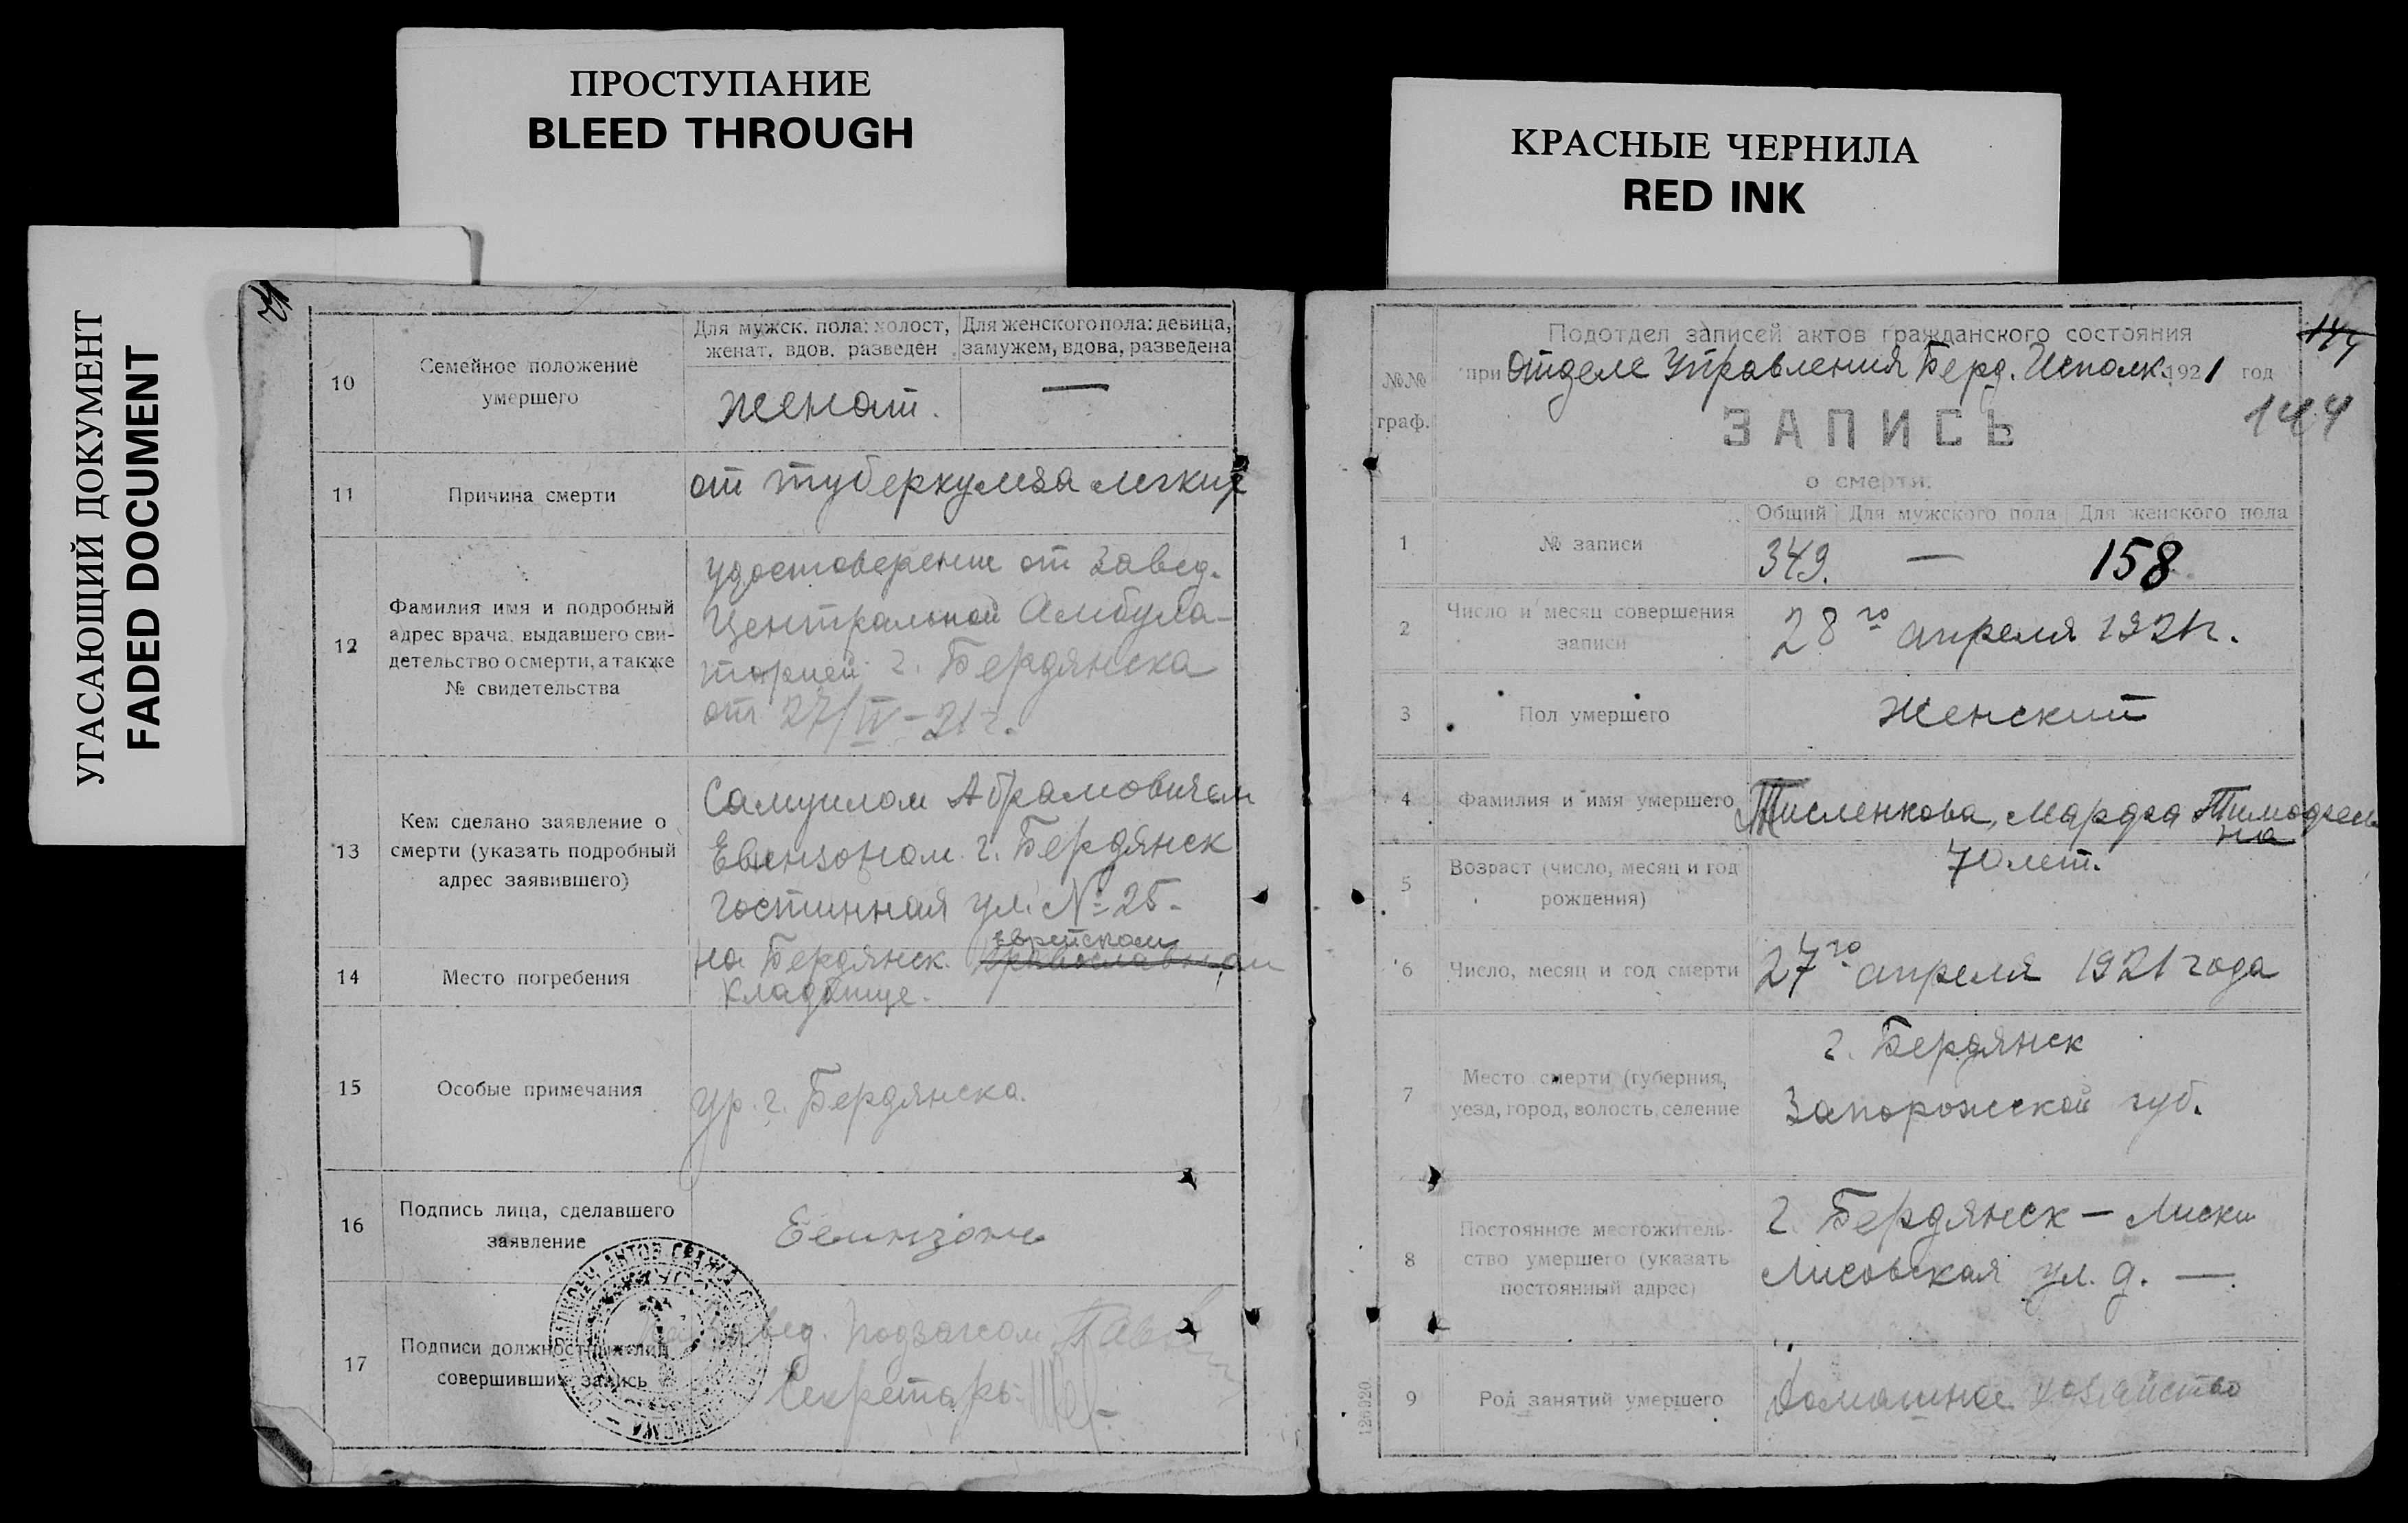 ПРОСТУПАНИЕ
BLEED THROUGH
КРАСНЫЕ ЧЕРНИЛА
RED INK
УГАСАЮЩИЙ ДОКУМЕНТ
FADED DOCUMENT
10
Семейное положение
умершего
Для мужск. пола: холост,
женат, вдов. разведен
Для женского пола: девица,
замужем, вдова, разведена
женат.
—
11
Причина смерти
от туберкулеза легких
12
Фамилия имя и подробный
адрес врача, выдавшего сви-
детельство о смерти, а также
№ свидетельства
удостоверение от Завед.
Центральной Амбула-
торией г. Бердянска
от 27/IV-21 г.
13
Кем сделано заявление о
смерти (указать подробный
адрес заявившего)
Самуилом Абрамовичем
г. Бердянск
гостинная ул. № 25-
14
Место погребения
еврейском
на Бердянск. православном
кладбище.
15
Особые примечания
ур. г. Бердянска.
16
Подпись лица, сделавшего
заявление
17
Подписи должностных лиц
совершивших запись
Завед. Подзагсом
Секретарь
Подотдел записей актов гражданского состояния
144
№№
граф.
при Отделе Управления Берд. Исполк. 1921 год
144
ЗАПИСЬ
о смерти.
Общий
Для мужского пола
Для женского пола
1
№ записи
349.
—
158
2
Число и месяц совершения
записи
28го апреля 1921 г.
3
Пол умершего
Женский
4
Фамилия и имя умершего
Тисленкова, Марфа Тимофеев
на
5
Возраст (число, месяц и год
рождения)
70 лет.
6
Число, месяц и год смерти
27го апреля 1921 года
7
Место смерти (губерния,
уезд, город, волость, селение
г. Бердянск
Запорожской губ.
8
Постоянное местожитель-
ство умершего (указать
постоянный адрес)
г. Бердянск — Лиски
Лисовская ул. д. —.
9
Род занятий умершего
Домашнее хозяйство
126320